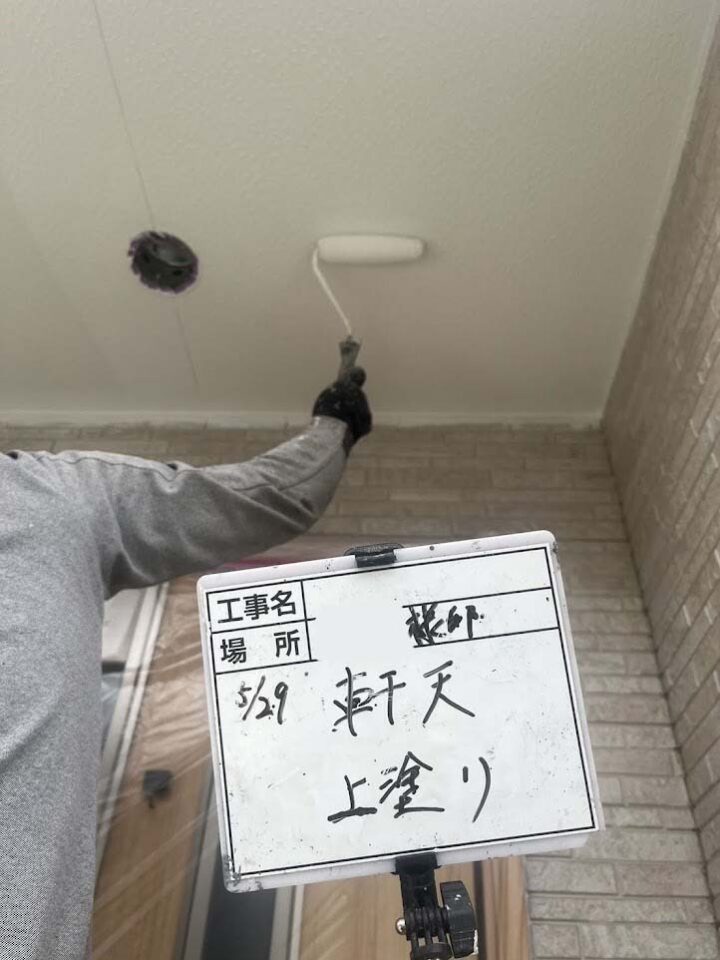 工事名
様邸
場 所
5/29 軒天
上塗り